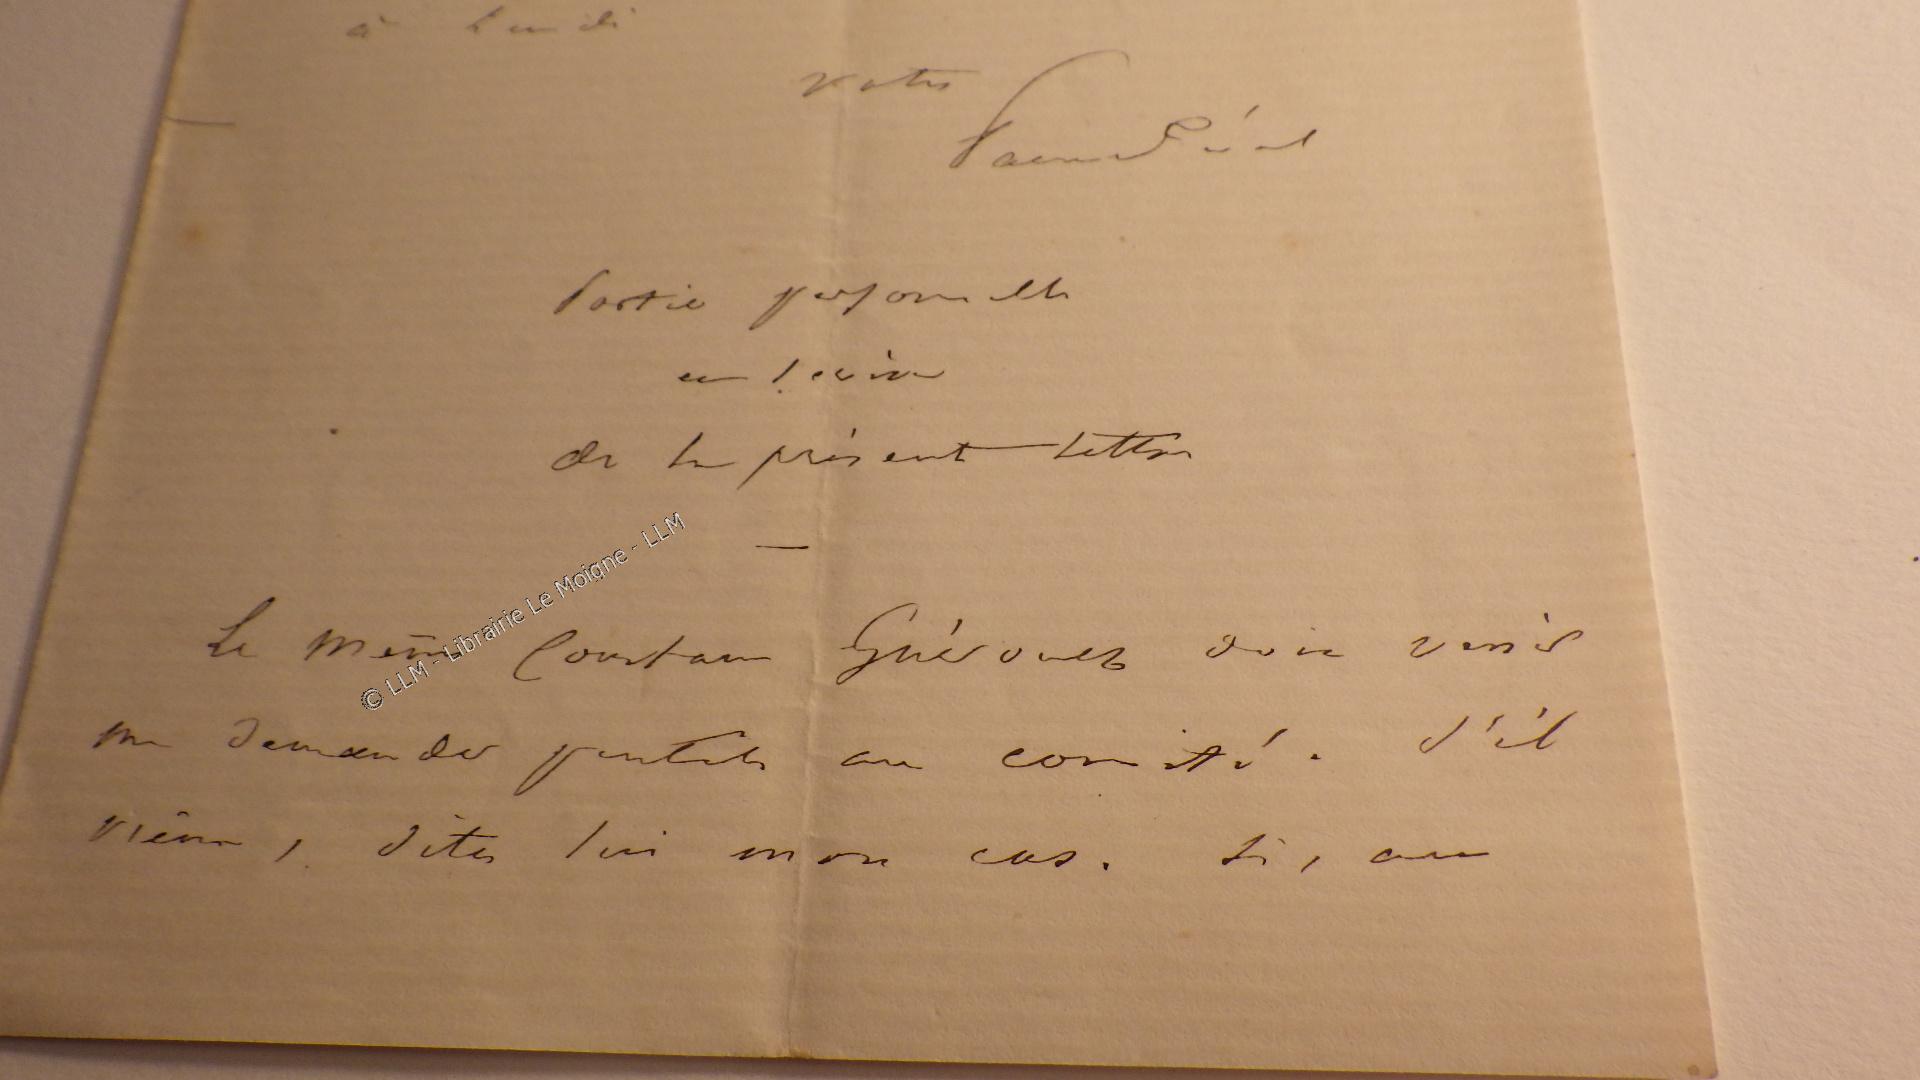 à lundi
votre
Paul Féval
Partie personnelle
de la présente lettre
Le même Constant Guéroult doit venir
me demander au comité. S'il
vient, dites lui mon cas. Si, au
© LLM - Librairie Le Moigne - LLM